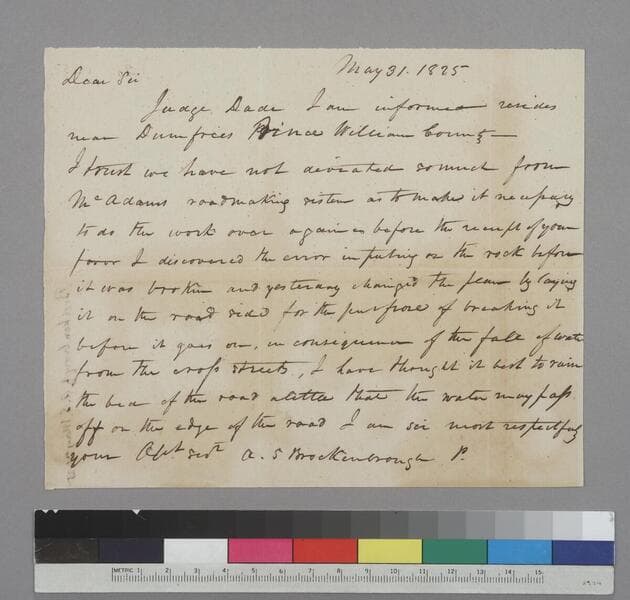 May 31. 1825
Dear Sir
Judge Dade I am informed resides
near Dumfries Prince William County —
I trust we have not deviated so much from
McAdams roadmaking sistem as to make it necessary
to do the work over again as before the receipt of your
favor I discovered the error in puting on the rock before
it was broken and yesterday changed the plan by laying
it on the road side for the purpose of breaking it
before it goes on, in consequence of the fall of water
from the cross streets, I have thought it best to raise
the bed of the road a little that the water may pass
off on the edge of the road I am sir most respectfully
your Obt servt A. S Brockenbrough P.
METRIC 1 2 3 4 5 6 7 8 9 10 11 12 13 14 15